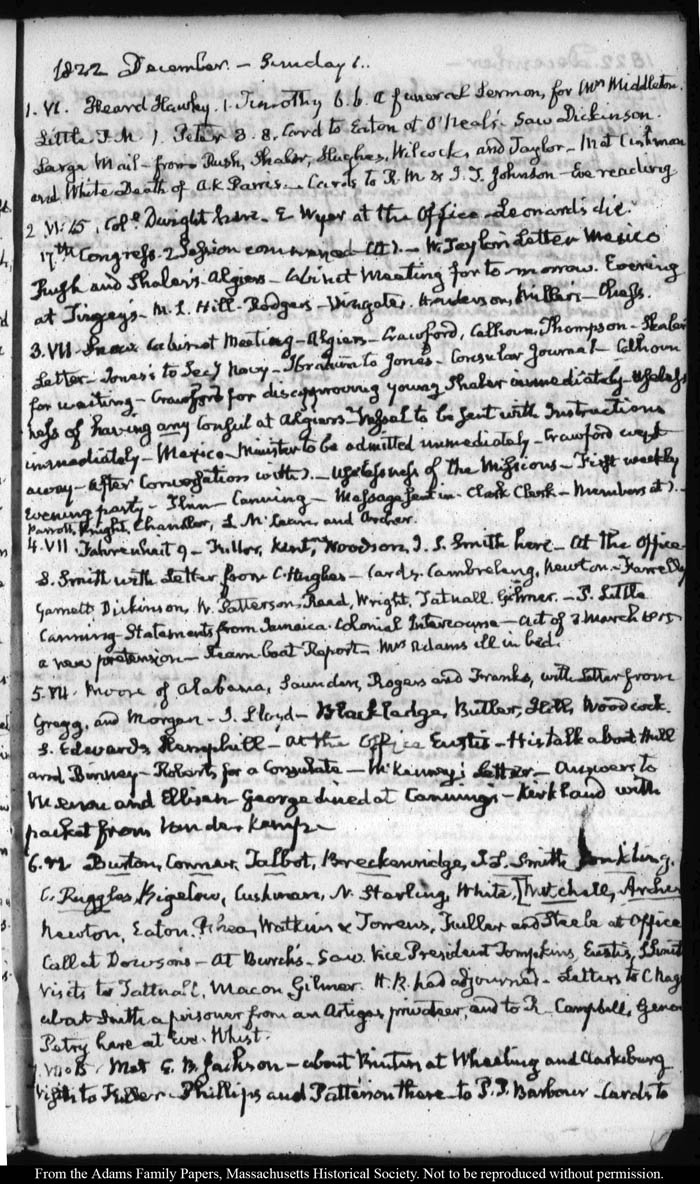 1822 December. – Sunday 1.
1. VI. Heard Hawley. 1. Timothy 6. 6. A funeral Sermon, for Mrs Middleton.
Little I. M. 1. Peter 3. 8. Card to Eaton at O'Neal's. Saw Dickinson.
Large Mail – from Rush, Shaler, Hughes, Wilcocks, and Taylor – Met Cushman
and White. Death of A. K Parris. – Cards to R. M & J. T. Johnson – Eve reading
2 VI: 45. Colo. Dwight here. E Wyer at the Office – Leonard's die.
17th Congress. 2 Session commenced – W. Taylor's Letter Mexico
Rush and Shaler's. Algiers – Cabinet Meeting for to-morrow. Evening
at Tingey's – M. L. Hill – Rodgers – Wingate. Henderson, Miller – Chess.
3. VII Snow Cabinet Meeting – Algiers – Crawford, Calhoun, Thompson – Shaler
Letter – Jones's to Secy Navy – to Jones – Consular Journal – Calhoun
for waiting – Crawford for disapproving young Shaler immediately – Useless
ness of having any Consul at Algiers – Vessel to be sent with Instructions
immediately – Mexico – Minister to be admitted immediately – Crawford went
away – after Conversation with – Uselessness of the Missions – First weekly
evening party – Thin – Canning – Message sent in. Clark Clerk – Members at
Parrott, Knight, Chandler, L. McLean, and Archer.
4. VII. Fahrenheit 9 – Fuller, Kent, Woodson, J. S. Smith here – At the Office
S. Smith with Letter from C. Hughes – Cards. Cambreleng, Newton – Farrelly
Garnett Dickinson, W. Patterson, Reed, Wright, Tatnall. Gilmer. – P. Little
Canning – Statements from Jamaica. Colonial Intercourse – Act of 3 March 1815
a new pretension – Steam boat Report. Mrs Adams ill in bed.
5. VII. Moore of Alabama, Saunders, Rogers and Franks, with Letter from
Gregg, and Morgan – J. Lloyd – Blackledge, Butler, Woodcock.
S. Edwards, Hemphill – at the Office Eustis – His talk about Hull
and Binney – Roberts for a Consulate – McKenney's Letter – Answers to
Menou and Ellison – George dined at Canning's – Kirkland with
packet from Van der Kemp –
6. VI Burton, Conner, Talbot, Breckenridge, J. S. Smith Conkling,
C. Ruggles, Bigelow, Cushman, N. Starling, White, Mitchell, Archer
Newton, Eaton. Rhea, Watkins & Torrens, Fuller and Steele at Office
Call at Dawson's – At Burch's. Saw Vice President Tompkins, Eustis,
Visits to Tattnall, Macon, Gilmer. H. R. had adjourned – Letters to C
about Smith a prisoner from an Artigas privateer, and to R. Campbell, Genoa
Petry here at Eve. Whist.
7. VII. Met E. B. Jackson – about at Wheeling and Clarksburg
Visits to Fuller – Phillips and Patterson there – to P. P. Barbour – Cards to
From the Adams Family Papers, Massachusetts Historical Society. Not to be reproduced without permission.